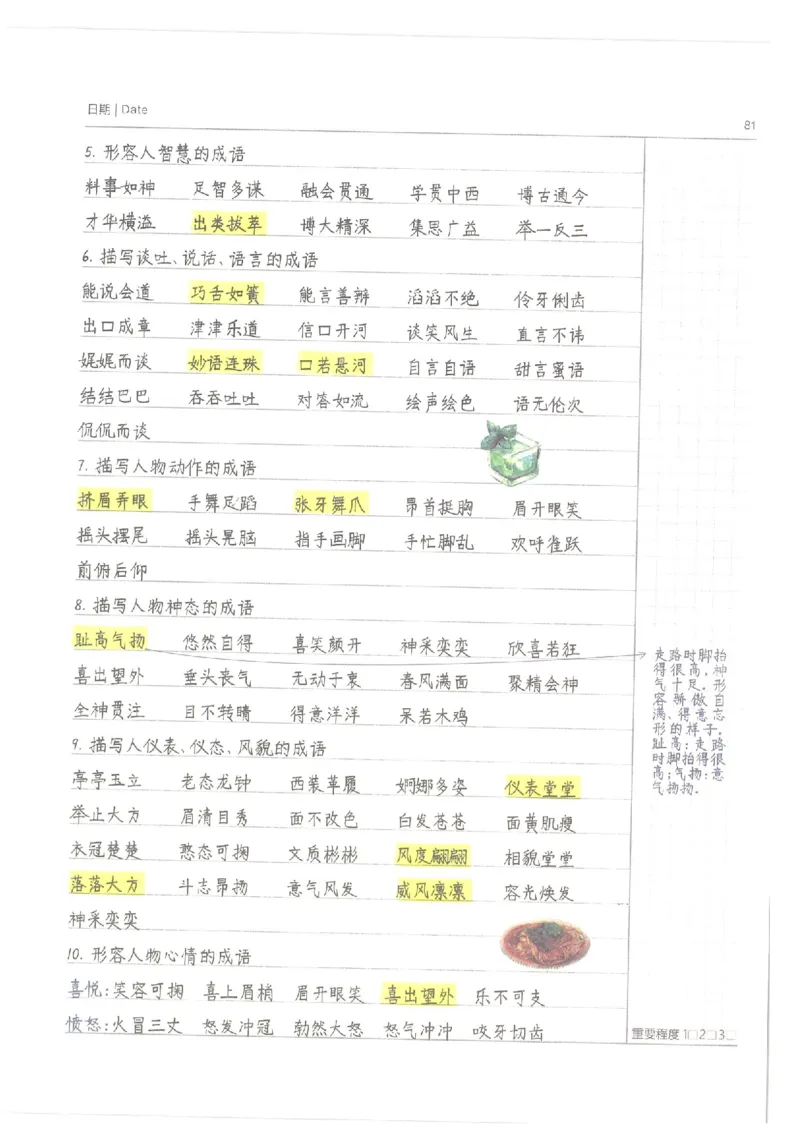 日期 | Date
81
5. 形容人智慧的成语
料事如神 足智多谋 融会贯通 学贯中西 博古通今
才华横溢 出类拔萃 博大精深 集思广益 举一反三
6. 描写谈吐、说话、语言的成语
能说会道 巧舌如簧 能言善辩 滔滔不绝 伶牙俐齿
出口成章 津津乐道 信口开河 谈笑风生 直言不讳
娓娓而谈 妙语连珠 口若悬河 自言自语 甜言蜜语
结结巴巴 吞吞吐吐 对答如流 绘声绘色 语无伦次
侃侃而谈
7. 描写人物动作的成语
挤眉弄眼 手舞足蹈 张牙舞爪 昂首挺胸 眉开眼笑
摇头摆尾 摇头晃脑 指手画脚 手忙脚乱 欢呼雀跃
前俯后仰
8. 描写人物神态的成语
趾高气扬 悠然自得 喜笑颜开 神采奕奕 欣喜若狂
喜出望外 垂头丧气 无动于衷 春风满面 聚精会神
全神贯注 目不转睛 得意洋洋 呆若木鸡
9. 描写人仪表、仪态、风貌的成语
亭亭玉立 老态龙钟 西装革履 婀娜多姿 仪表堂堂
举止大方 眉清目秀 面不改色 白发苍苍 面黄肌瘦
衣冠楚楚 憨态可掬 文质彬彬 风度翩翩 相貌堂堂
落落大方 斗志昂扬 意气风发 威风凛凛 容光焕发
神采奕奕
10. 形容人物心情的成语
喜悦:笑容可掬 喜上眉梢 眉开眼笑 喜出望外 乐不可支
愤怒:火冒三丈 怒发冲冠 勃然大怒 怒气冲冲 咬牙切齿
走路时脚抬
得很高,神
气十足。形
容骄傲自
满、得意忘
形的样子。
趾高:走路
时脚抬得很
高;气扬:意
气扬扬。
重要程度 1□2□3□